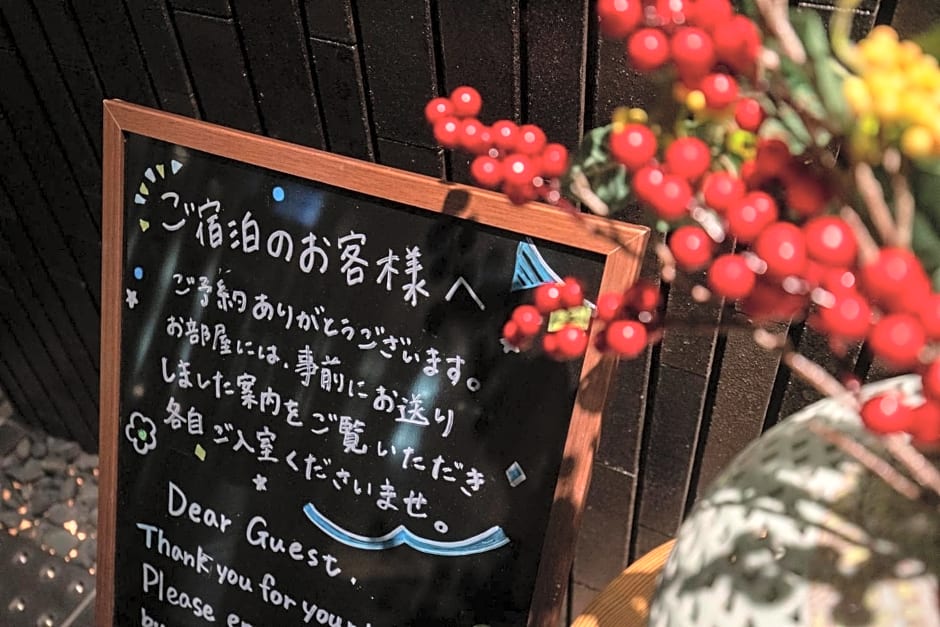 ご宿泊のお客様へ
ご予約ありがとうございます。
お部屋には、事前にお送り
しました案内をご覧いただき
各自ご入室くださいませ。
Dear Guest,
Thank you for your
Please